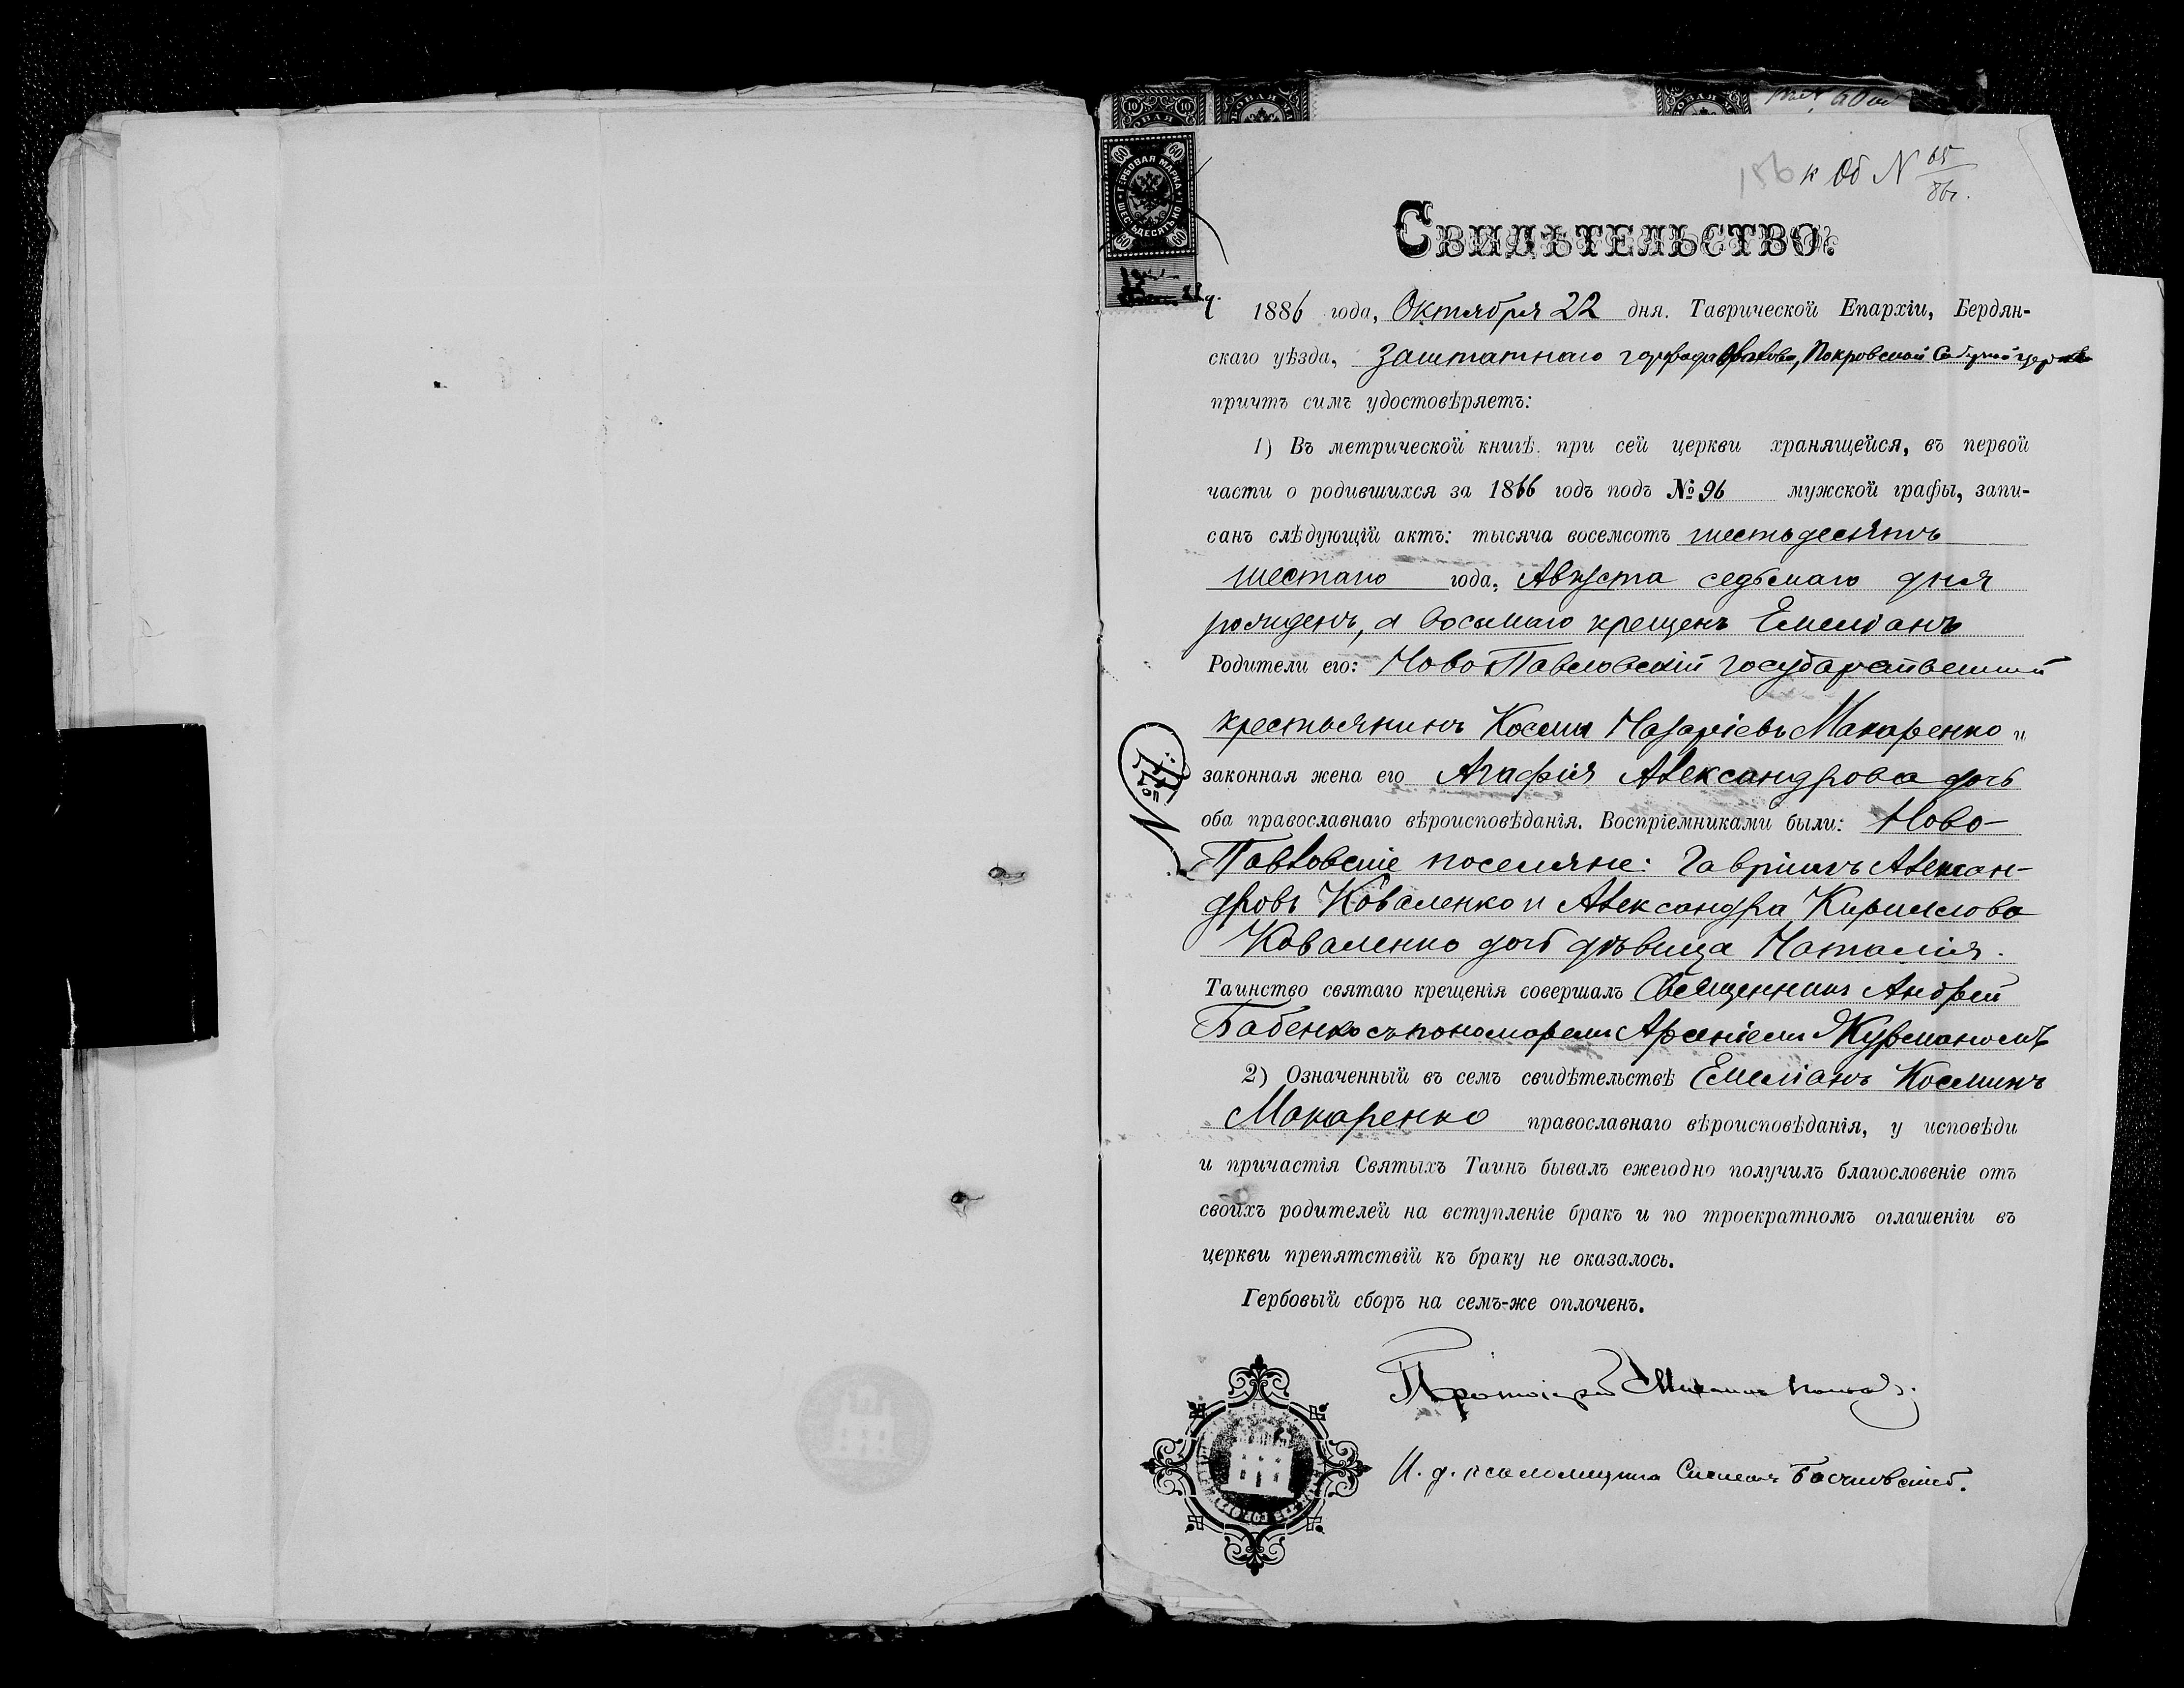 156 к Об № 65/86г.
ГЕРБОВАЯ МАРКА
ШЕСТЬДЕСЯТЪ КОП.
60 60 60 60
10 10
Свидѣтельство.
1886 года, Октября 22 дня. Таврической Епархіи, Бердян-
скаго уѣзда, Заштатнаго города Орѣхова, Покровской Соборной церкви
причтъ симъ удостовѣряетъ:
1) Въ метрической книгѣ при сей церкви хранящейся, въ первой
части о родившихся за 1866 годъ подъ № 96 мужской графы, запи-
санъ слѣдующій актъ: тысяча восемсотъ шестьдесятъ
шестаго года, Августа седьмаго дня
рожденъ, а восьмаго крещенъ Емеліанъ
Родители его: Ново Павловскій государственный
крестьянинъ Косма Назаріевъ Макаренко и
законная жена его Агафія Александрова дочь
оба православнаго вѣроисповѣданія. Воспріемниками были: Ново-
Павловскіе поселяне: Гавріилъ Алексан-
дровъ Коваленко и Александра Кириллова
Коваленко дочь дѣвица Наталія.
Таинство святаго крещенія совершалъ Священникъ Андрей
Бабенко съ пономаремъ Арсеніемъ Журманомъ
2) Означенный въ семъ свидѣтельствѣ Емеліанъ Косминъ
Макаренко православнаго вѣроисповѣданія, у исповѣди
и причастія Святыхъ Таинъ бывалъ ежегодно получилъ благословеніе отъ
своихъ родителей на вступленіе бракъ и по троекратномъ оглашеніи въ
церкви препятствій къ браку не оказалось.
Гербовый сборъ на семъ-же оплоченъ.
Протоіерей Михаилъ
И. д. псаломщика